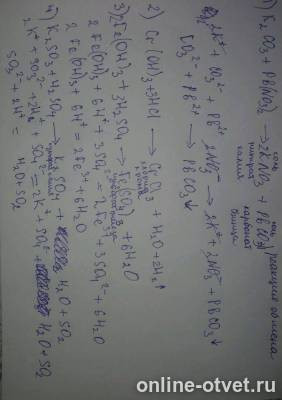 1) K2CO3 + Pb(NO3)2 → 2KNO3 + PbCO3↓ реакция обмена
соль нитрат калия
соль карбонат свинца
2K⁺ + CO3²⁻ + Pb²⁺ 2NO3⁻ → 2K⁺ + 2NO3⁻ + PbCO3↓
CO3²⁻ + Pb²⁺ → PbCO3↓
2) Cr(OH)3 + 3HCl → CrCl3 + H2O + 2H2↑
хлорид хрома
3) 2Fe(OH)3 + 3H2SO4 → Fe2(SO4)3 + 6H2O
2Fe(OH)3 + 6H⁺ + 3SO4²⁻ = 2Fe³⁺ + 3SO4²⁻ + 6H2O
2Fe(OH)3 + 6H⁺ = 2Fe³⁺ + 6H2O
4) K2SO3 + H2SO4 → K2SO4 + H2O + SO2
2K⁺ + SO3²⁻ + 2H⁺ + SO4²⁻ = 2K⁺ + SO4²⁻ + H2O + SO2
SO3²⁻ + 2H⁺ = H2O + SO2
online-otvet.ru